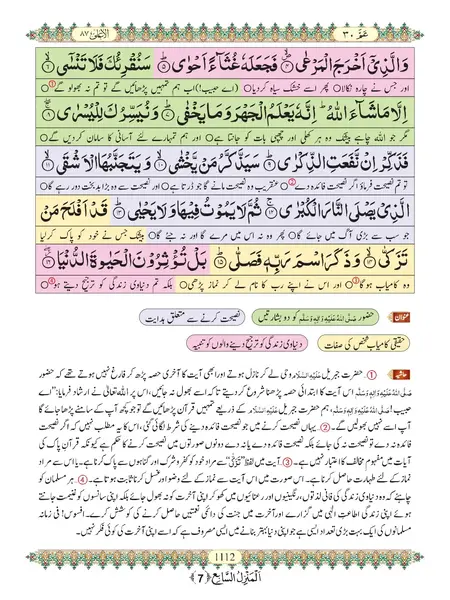 عَمَّ ۳۰
الاعلیٰ ۸۷
وَالَّذِیْۤ اَخْرَجَ الْمَرْعٰى ۴ فَجَعَلَهٗ غُثَآءً اَحْوٰى ۵ سَنُقْرِئُكَ فَلَا تَنْسٰۤى ۶
اور جس نے چارہ نکالا پھر اسے خشک سیاہ کردیا (اے حبیب!) اب ہم تمہیں پڑھائیں گے تو تم نہ بھولو گے ①
اِلَّا مَا شَآءَ اللّٰهُ اِنَّهٗ یَعْلَمُ الْجَهْرَ وَ مَا یَخْفٰى ۷ وَ نُیَسِّرُكَ لِلْیُسْرٰى ۸
مگر جو اللہ چاہے بیشک وہ ہر کھلی اور چھپی بات کو جانتا ہے اور ہم تمہارے لئے آسانی کا سامان کردیں گے
فَذَكِّرْ اِنْ نَّفَعَتِ الذِّكْرٰى ۹ سَیَذَّكَّرُ مَنْ یَّخْشٰى ۱۰ وَ یَتَجَنَّبُهَا الْاَشْقَى ۱۱
تو تم نصیحت فرماؤ اگر نصیحت فائدہ دے ② عنقریب وہ نصیحت مانے گا جو ڈرتا ہے اور نصیحت سے وہ بڑا بدبخت دور رہے گا
الَّذِیْ یَصْلَى النَّارَ الْكُبْرٰى ۱۲ ثُمَّ لَا یَمُوْتُ فِیْهَا وَ لَا یَحْیٰى ۱۳ قَدْ اَفْلَحَ مَنْ
جو سب سے بڑی آگ میں جائے گا پھر وہ نہ اس میں مرے گا اور نہ جئے گا بیشک جس نے خود کو پاک کرلیا
تَزَكّٰى ۱۴ وَ ذَكَرَ اسْمَ رَبِّهٖ فَصَلّٰى ۱۵ بَلْ تُؤْثِرُوْنَ الْحَیٰوةَ الدُّنْیَا ۱۶
وہ کامیاب ہوگیا ③ اور اس نے اپنے رب کا نام لے کر نماز پڑھی بلکہ تم دنیاوی زندگی کو ترجیح دیتے ہو ④
عنوان حضور صَلَّی اللہُ عَلَیْہِ وَاٰلِہٖ وَسَلَّم کو دو بشارتیں نصیحت کرنے سے متعلق ہدایت
حقیقی کامیاب شخص کی صفات دنیاوی زندگی کو ترجیح دینے والوں کو تنبیہ
حاشیہ ① حضرت جبریل عَلَیْہِ السَّلَام وحی لے کر نازل ہوتے اور ابھی آیت کا آخری حصہ پڑھ کر فارغ نہیں ہوتے تھے کہ حضور
صَلَّی اللہُ عَلَیْہِ وَاٰلِہٖ وَسَلَّم اس آیت کا ابتدائی حصہ پڑھنا شروع کردیتے تاکہ اسے بھول نہ جائیں، اس پر اللہ تعالیٰ نے ارشاد فرمایا: "اے
حبیب! صَلَّی اللہُ عَلَیْہِ وَاٰلِہٖ وَسَلَّم، ہم حضرت جبریل عَلَیْہِ السَّلَام کے ذریعے تمہیں قرآن پڑھائیں گے تو جو کچھ آپ کے سامنے پڑھا جائے گا
آپ اسے نہیں بھولیں گے۔ ② یہاں نصیحت کرنے میں جو نصیحت فائدہ دینے کی شرط لگائی گئی، اس کا یہ مطلب نہیں کہ اگر نصیحت
فائدہ نہ دے تو نصیحت نہ کی جائے بلکہ نصیحت فائدہ دے یا نہ دے دونوں صورتوں میں نصیحت کرنے کا حکم ہے کیونکہ قرآن پاک کی
آیات میں مفہومِ مخالف کا اعتبار نہیں ہے۔ ③ آیت میں لفظ "تَزَكّٰى" سے مراد خود کو کفر و شرک اور گناہوں سے پاک کرنا ہے۔ یا اس سے مراد
نماز کے لئے طہارت حاصل کرنا ہے۔ اس صورت میں اس آیت سے نماز کے لئے وضو اور غسل کرنا ثابت ہوتا ہے۔ ④ ہر مسلمان کو
چاہئے کہ وہ دنیاوی زندگی کی فانی لذتوں، رنگینیوں اور رعنائیوں میں کھو کر اپنی آخرت کو نہ بھول جائے بلکہ اپنی سانسوں کو غنیمت جانتے
ہوئے اپنی زندگی اطاعتِ الٰہی میں گزارے اور آخرت میں جنت کی دائمی نعمتیں حاصل کرنے کی کوشش کرے۔ افسوس! فی زمانہ
مسلمانوں کی ایک بہت بڑی تعداد ایسی ہے جو اپنی دنیا بہتر بنانے میں ایسی مصروف ہے کہ اسے اپنی آخرت کی کوئی فکر نہیں۔
1112
اَلْمَنْزِلُ السَّابِعُ ﴿7﴾